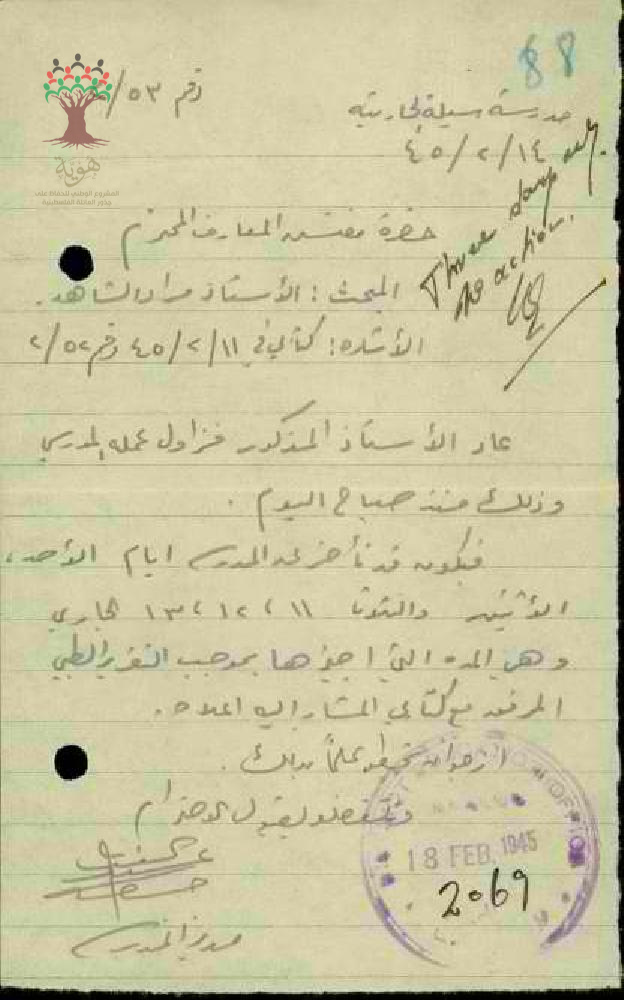 88
رقم ٥٣/
مدرسة سيلة الحارثية
١٤/٢/٤٥
Three days only.
No action.
هوية
المشروع الوطني للحفاظ على
جذور العائلة الفلسطينية
حضرة مفتش المعارف المحترم
المبحث : الأستاذ مراد الشاهد.
الأشاره : كتابي في ١١/٢/٤٥ رقم ٢/٥٢
عاد الأستاذ المذكور فزاول عمله المدرسي
وذلك منذ صباح اليوم .
فيكون قد تأخر عن المدرسه ايام الأحد،
الأثنين والثلاثا ١١ ، ١٢ ، ١٣ الجاري
وهي المده التي اجيزها بموجب التقرير الطبي
المرفق مع كتابي المشار اليه اعلاه .
ارجو ان تحيطو علماً بذلك .
وتتفضلو بقبول الاحترام
مدير المدرسه
18 FEB. 1945
2069